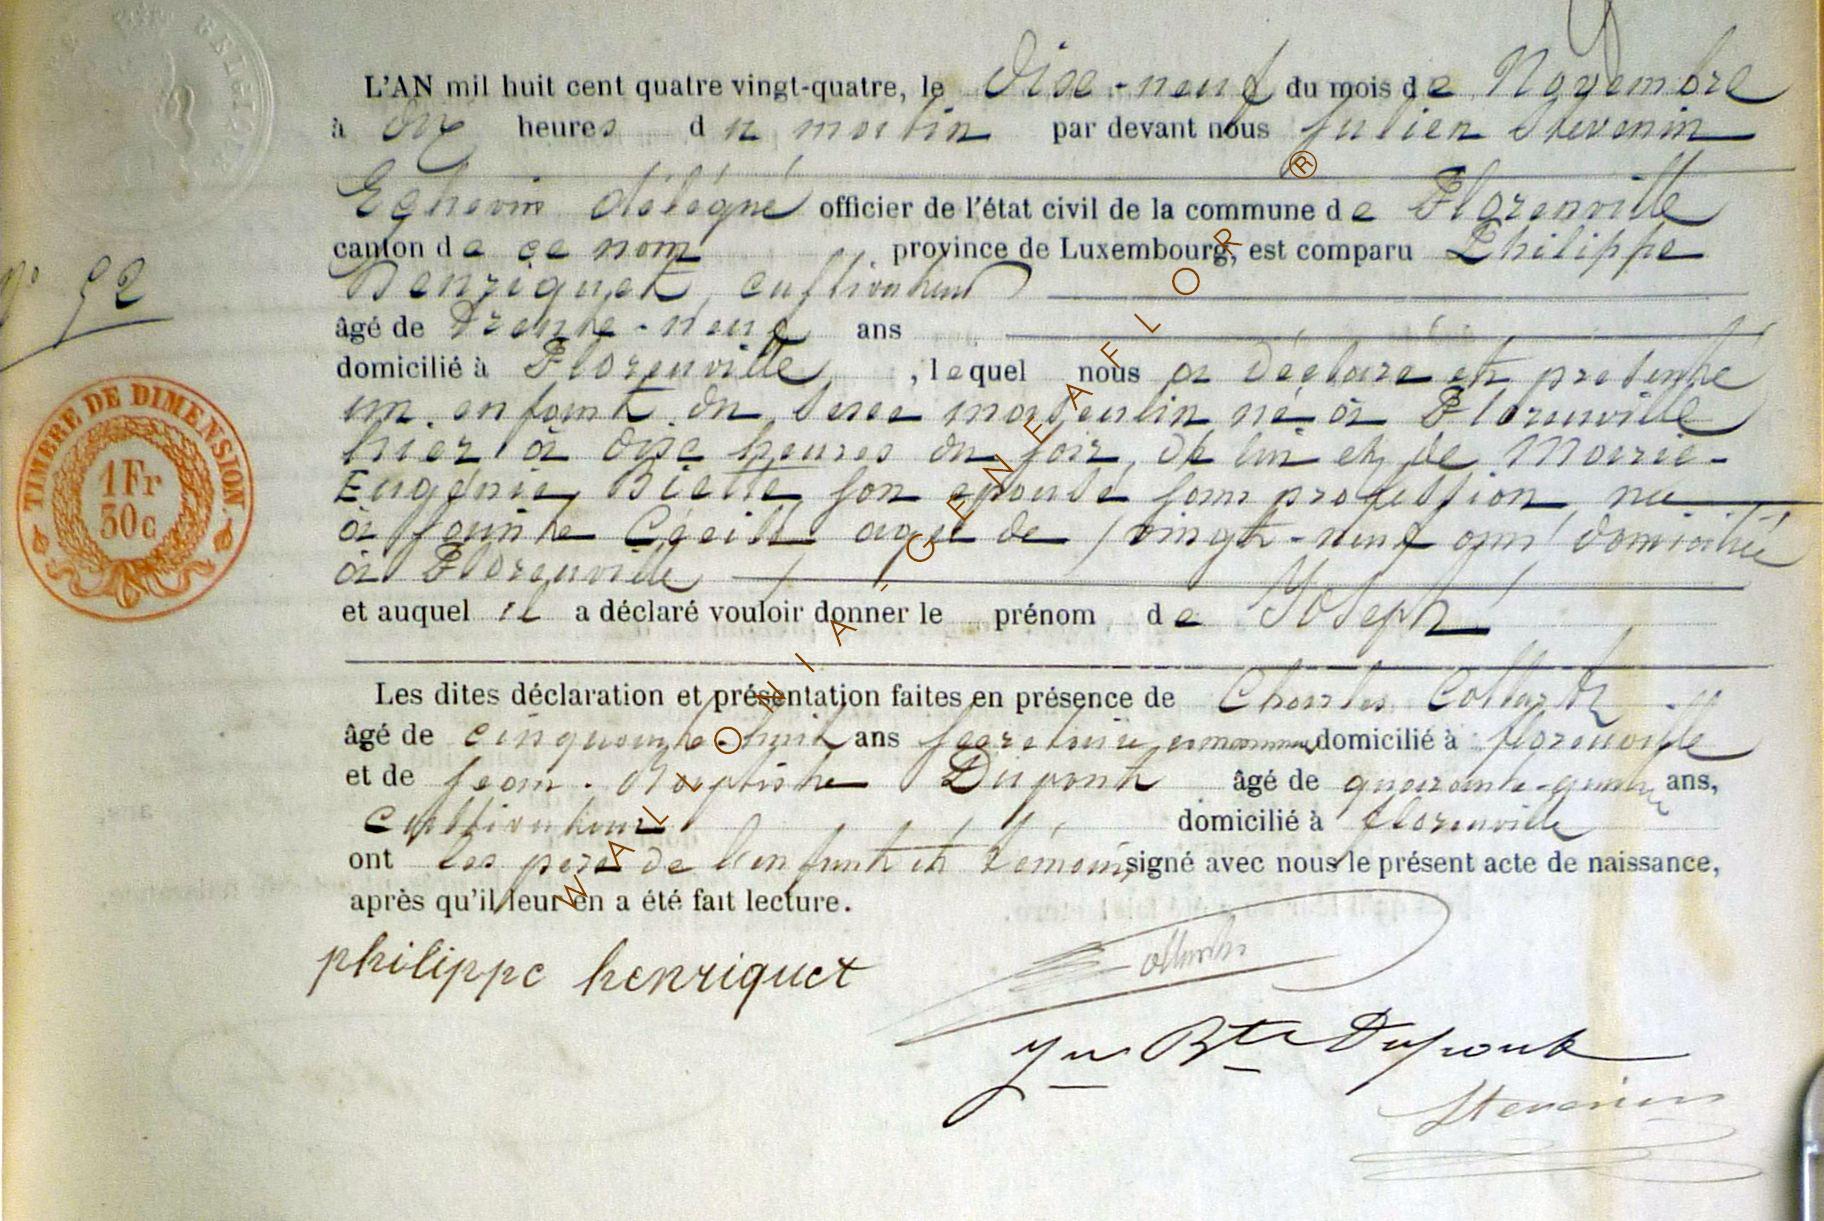 L'AN mil huit cent quatre vingt-quatre, le Dix-neuf du mois de Novembre
à dix heures du matin par devant nous Julien Stevenin
Echevin délégué officier de l'état civil de la commune de Florenville
canton de ce nom province de Luxembourg, est comparu Philippe
Henriquet, cultivateur
N° 92
âgé de Trente-neuf ans
domicilié à Florenville, lequel nous a déclaré et présenté
un enfant du sexe masculin né à Florenville
hier à dix heures du soir, de lui et de Marie-
Eugénie Biette son épouse sans profession née
à Sainte Cécile agée de vingt-neuf ans domiciliée
à Florenville
et auquel il a déclaré vouloir donner le prénom de Joseph
TIMBRE DE DIMENSION
1 Fr
30c
Les dites déclaration et présentation faites en présence de Charles Collard
âgé de cinquante-huit ans secrétaire communal domicilié à florenville
et de Jean-Baptiste Dupont âgé de quarante- ans,
cultivateur domicilié à florenville
ont les père de l'enfant et témoins signé avec nous le présent acte de naissance,
après qu'il leur en a été fait lecture.
philippe henriquet
Jn Bte Dupont
Stevenin
WALLONIA-GENEAFLOR ®